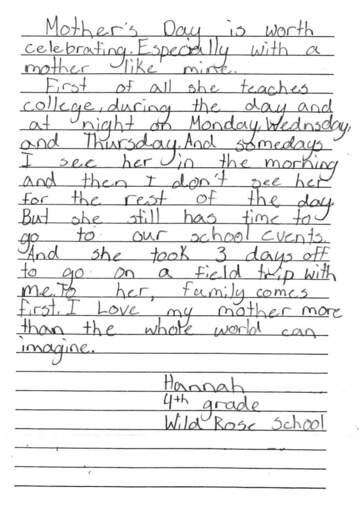 Mother's Day is worth
celebrating. Especially with a
mother like mine.
First of all she teaches
college, during the day and
at night on Monday, Wednsday,
and Thursday. And somedays
I see her in the morning
and then I don't see her
for the rest of the day.
But she still has time to
go to our school events.
And she took 3 days off
to go on a field trip with
me. To her, family comes
first. I Love my mother more
than the whole world can
imagine.
Hannah
4th grade
Wild Rose School